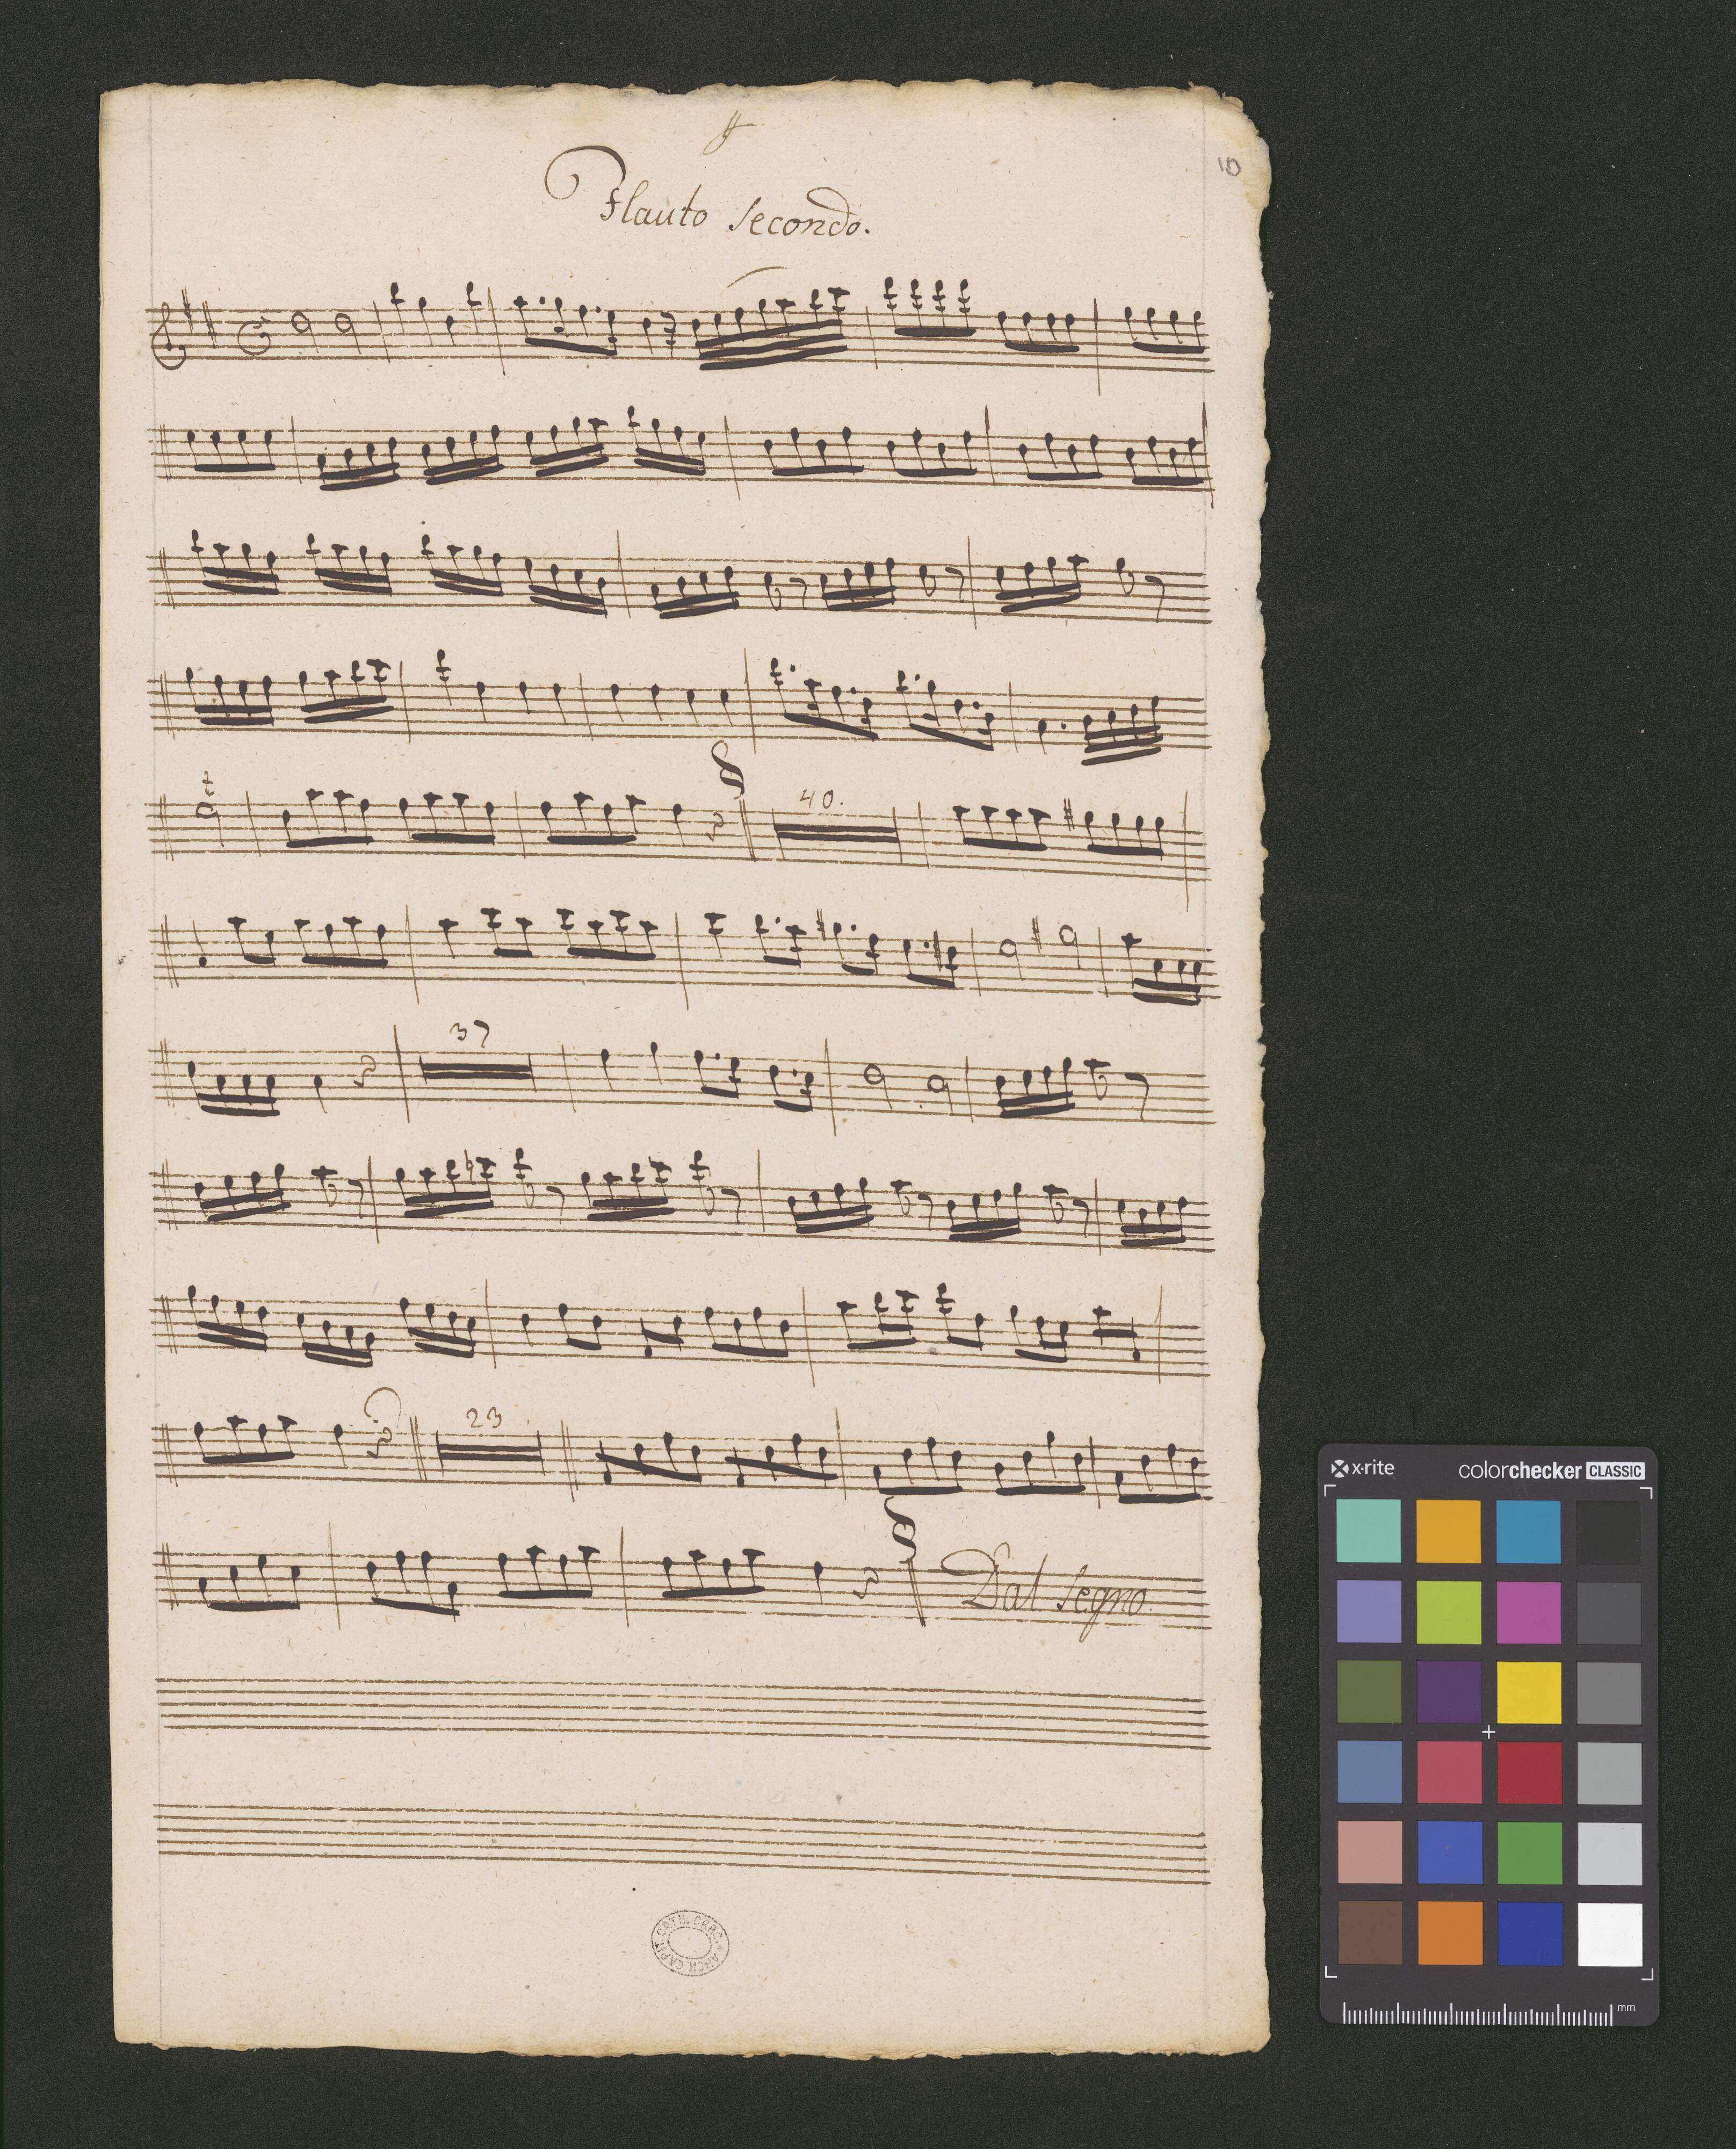 10
Flauto secondo.
40.
37
23
Dal segno
ARCH. CAPIT. CATH. CRAC.
x-rite
colorchecker CLASSIC
mm